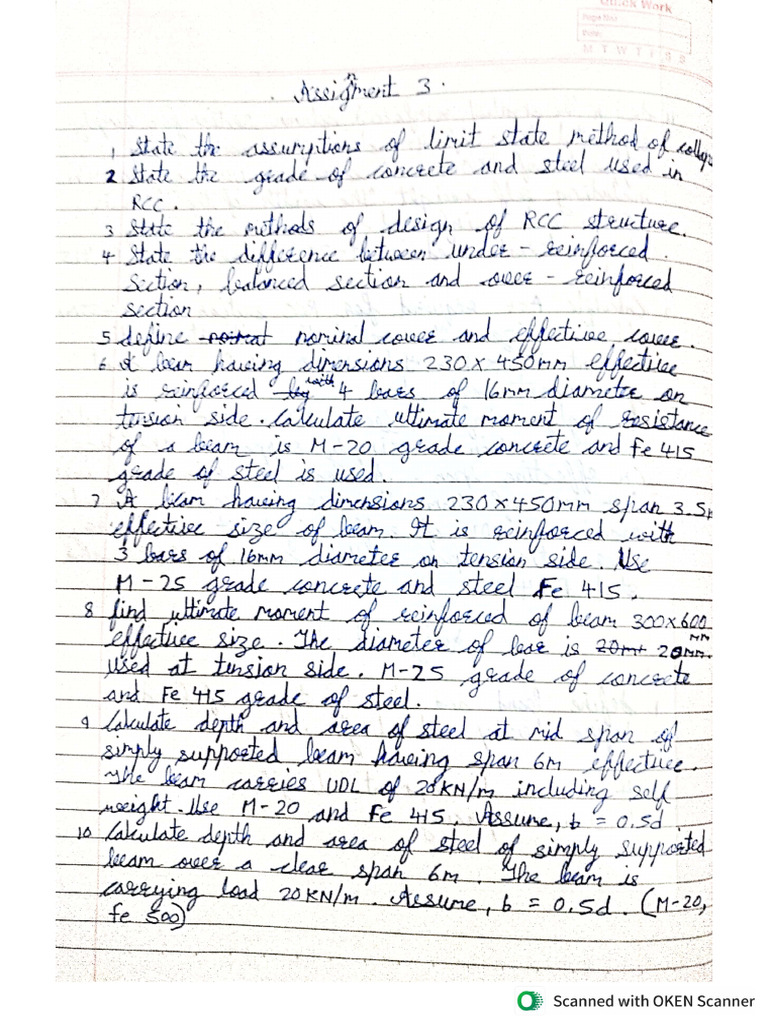 Quick Work
Page No:
Date:
M T W T F S S
Assignment 3.
1 State the assumptions of limit state method of
2 State the grade of concrete and steel used in
RCC.
3 State the methods of design of RCC structure.
4 State the difference between under-reinforced
section, balanced section and over-reinforced
section
5 define nominal cover and effective cover.
6 A beam having dimensions 230 x 450mm effective
is reinforced with 4 bars of 16mm diameter on
tension side. Calculate ultimate moment of resistance
of a beam is M-20 grade concrete and Fe 415
grade of steel is used.
7 A beam having dimensions 230 x 450mm span 3.5
effective size of beam. It is reinforced with
3 bars of 16mm diameter on tension side. Use
M-25 grade concrete and steel Fe 415.
8 find ultimate moment of reinforced of beam 300x600 mm
effective size. The diameter of bar is 20mm 20mm
used at tension side. M-25 grade of concrete
and Fe 415 grade of steel.
9 Calculate depth and area of steel at mid span of
simply supported beam having span 6m effective.
The beam carries UDL of 20KN/m including self
weight. Use M-20 and Fe 415. Assume, b = 0.5d.
10 Calculate depth and area of steel of simply supported
beam over a clear span 6m. The beam is
carrying load 20KN/m. Assume, b = 0.5d. (M-20,
fe 500)
Scanned with OKEN Scanner